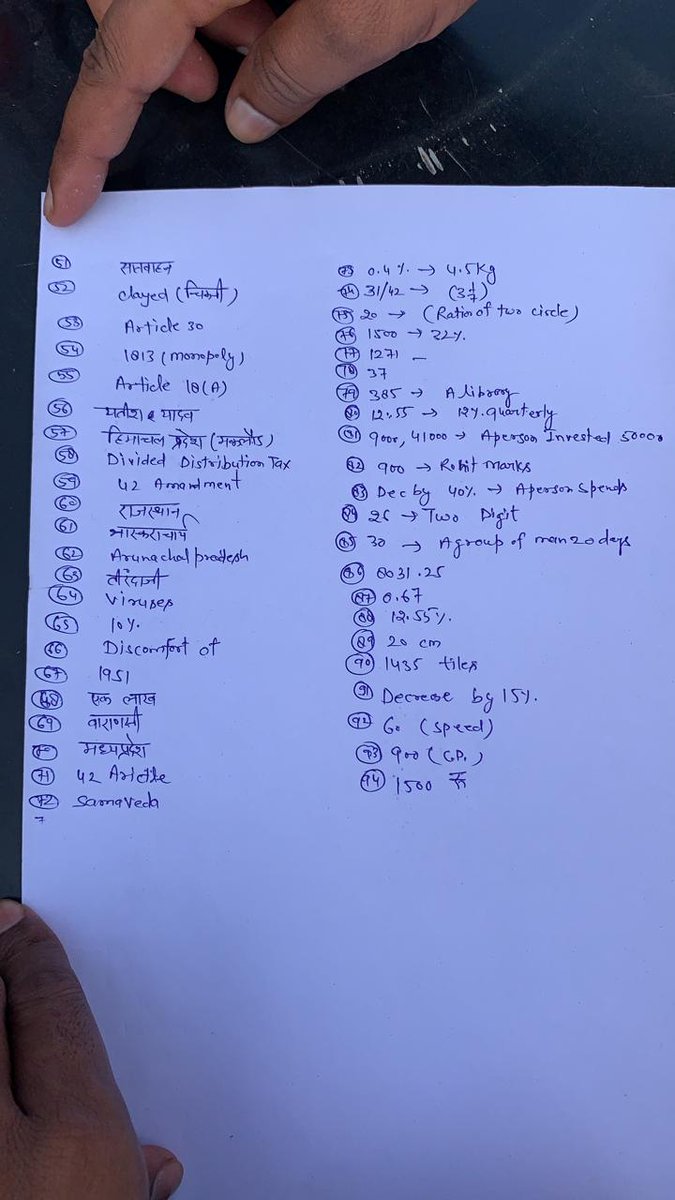 51 सातवाहन
52 clayed (चिकनी)
53 Article 30
54 1813 (monopoly)
55 Article 18(A)
56 यादव
57 हिमाचल प्रदेश
58 Divided Distribution Tax
59 42 Amandment
60 राजस्थान
61 भास्कराचार्य
62 Arunachal pradesh
63 तीरंदाजी
64 Viruses
65 10%
66 Discomfort of
67 1951
68 एक लाख
69 वाराणसी
70 मध्यप्रदेश
71 42 Article
72 Samaveda
7
73 0.4% → 4.5kg
74 31/42 →
75 20 → (Ratio of two circle)
76 1500 → 22%
77 1271 –
78 37
79 385 → A library
80 12.55 → 12% quarterly
81 9000, 41000 → A person Invested 50000
82 900 → Rohit marks
83 Dec by 40% → A person spends
84 26 → Two Digit
85 30 → A group of men 20 days
86 8031.25
87 0.67
88 12.55%
89 20 cm
90 1435 tiles
91 Decrease by 15%.
92 60 (speed)
93 900
94 1500 रू